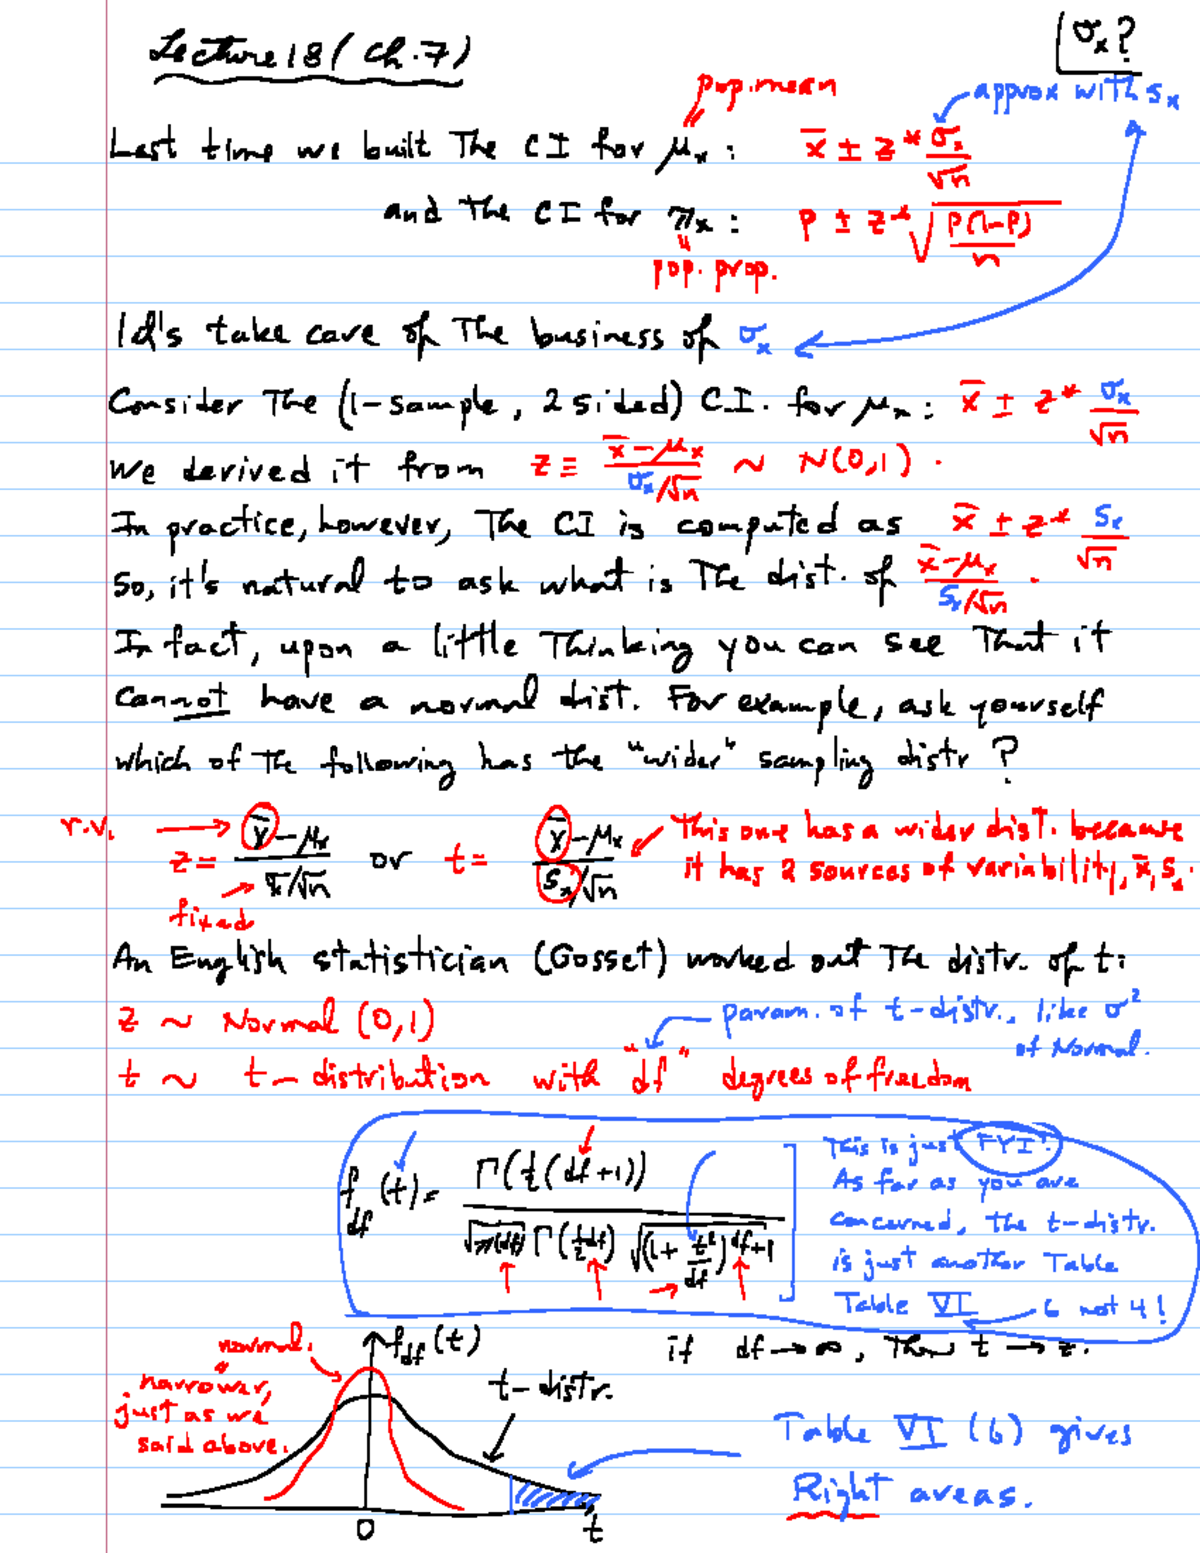 Lecture 18 (Ch.7)
σx?
pop. mean
approx with sx
Last time we built The CI for μx : x̄ ± z* σx/√n
and The CI for πx : p ± z* √(p(1-p)/n)
pop. prop.
let's take care of The business of σx
Consider The (1-sample, 2 sided) C.I. for μx : x̄ ± z* σx/√n
we derived it from z ≡ (x̄-μx)/(σx/√n) ~ N(0,1).
In practice, however, The CI is computed as x̄ ± z* sx/√n
So, it's natural to ask what is The dist. of (x̄-μx)/(sx/√n).
In fact, upon a little Thinking you can see That it
cannot have a normal dist. For example, ask yourself
which of The following has the "wider" sampling distr ?
r.v. z = (x̄-μx)/(σ/√n) or t = (x̄-μx)/(sx/√n) This one has a wider dist. because
it has 2 sources of variability, x̄, sx.
fixed
An English statistician (Gosset) worked out The distr. of t:
z ~ Normal (0,1) param. of t-distr., like σ²
of Normal.
t ~ t-distribution with "df" degrees of freedom
f_df(t) = Γ(½(df+1)) / (√(π(df)) Γ(½df) √((1+t²/df)^(df+1)))
This is just FYI!
As far as you are
concerned, the t-distr.
is just another Table
Table VI 6 not 4!
normal. f_df(t) if df → ∞, Then t → z.
narrower,
just as we
said above.
t-distr.
Table VI (6) gives
Right areas.
0 t